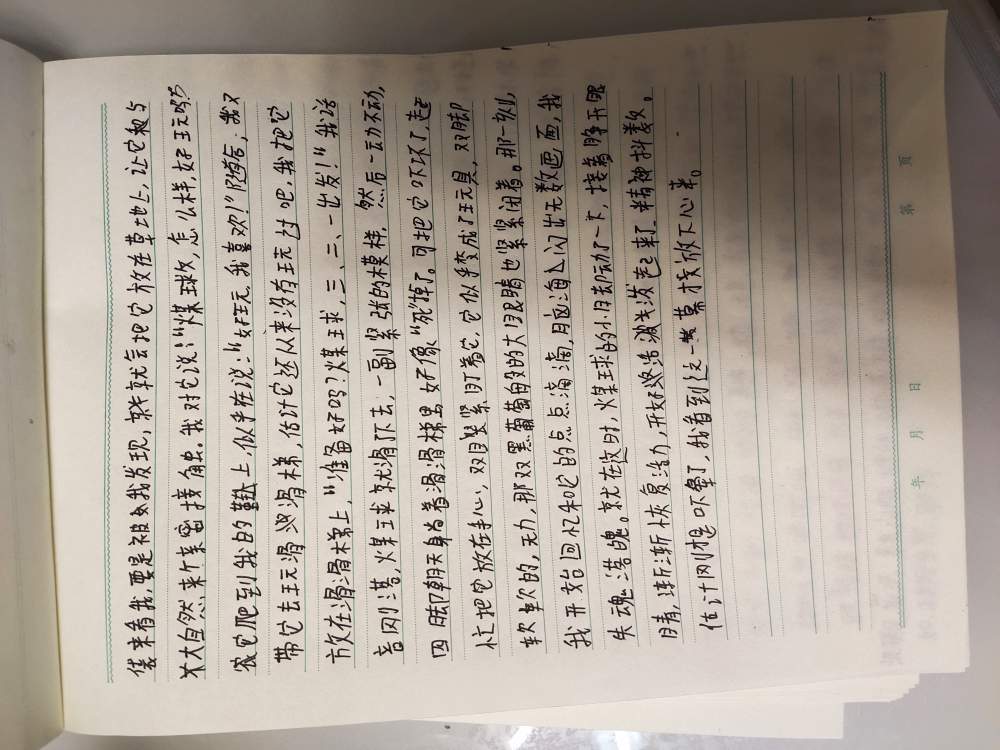 来看我，要是被我发现，就会把它放在草地上，让它和与
大自然来个亲密接触。我对它说：“煤球，怎么样，好玩吗？”
它爬到我的鞋上，似乎在说：“好玩，我喜欢！”随后，我又
带它去玩滑滑梯，估计它还从来没有玩过吧，我把它
放在滑滑梯上，“准备好吗？煤球，三、二、一出发！”我话
音刚落，煤球就滑了下去，一副紧张的模样，然后一动不动，
四脚朝天身着滑滑梯里，好像“死”掉了。可把它吓坏了，赶
忙把它放在手心，双目紧盯着它，它似乎变成了玩具，双脚
软软的，无力，那双黑葡萄般的大眼睛也紧紧闭着。那一刻，
我开始回忆和它的点点滴滴，脑海里闪出无数画面，我
失魂落魄。就在这时，煤球的小脚动了一下，接着睁开眼
睛，渐渐恢复活力，开始活泼起来了，精神抖擞。
估计刚想吓晕了，我看到这一幕才放下心来。
年 月 日 第 页